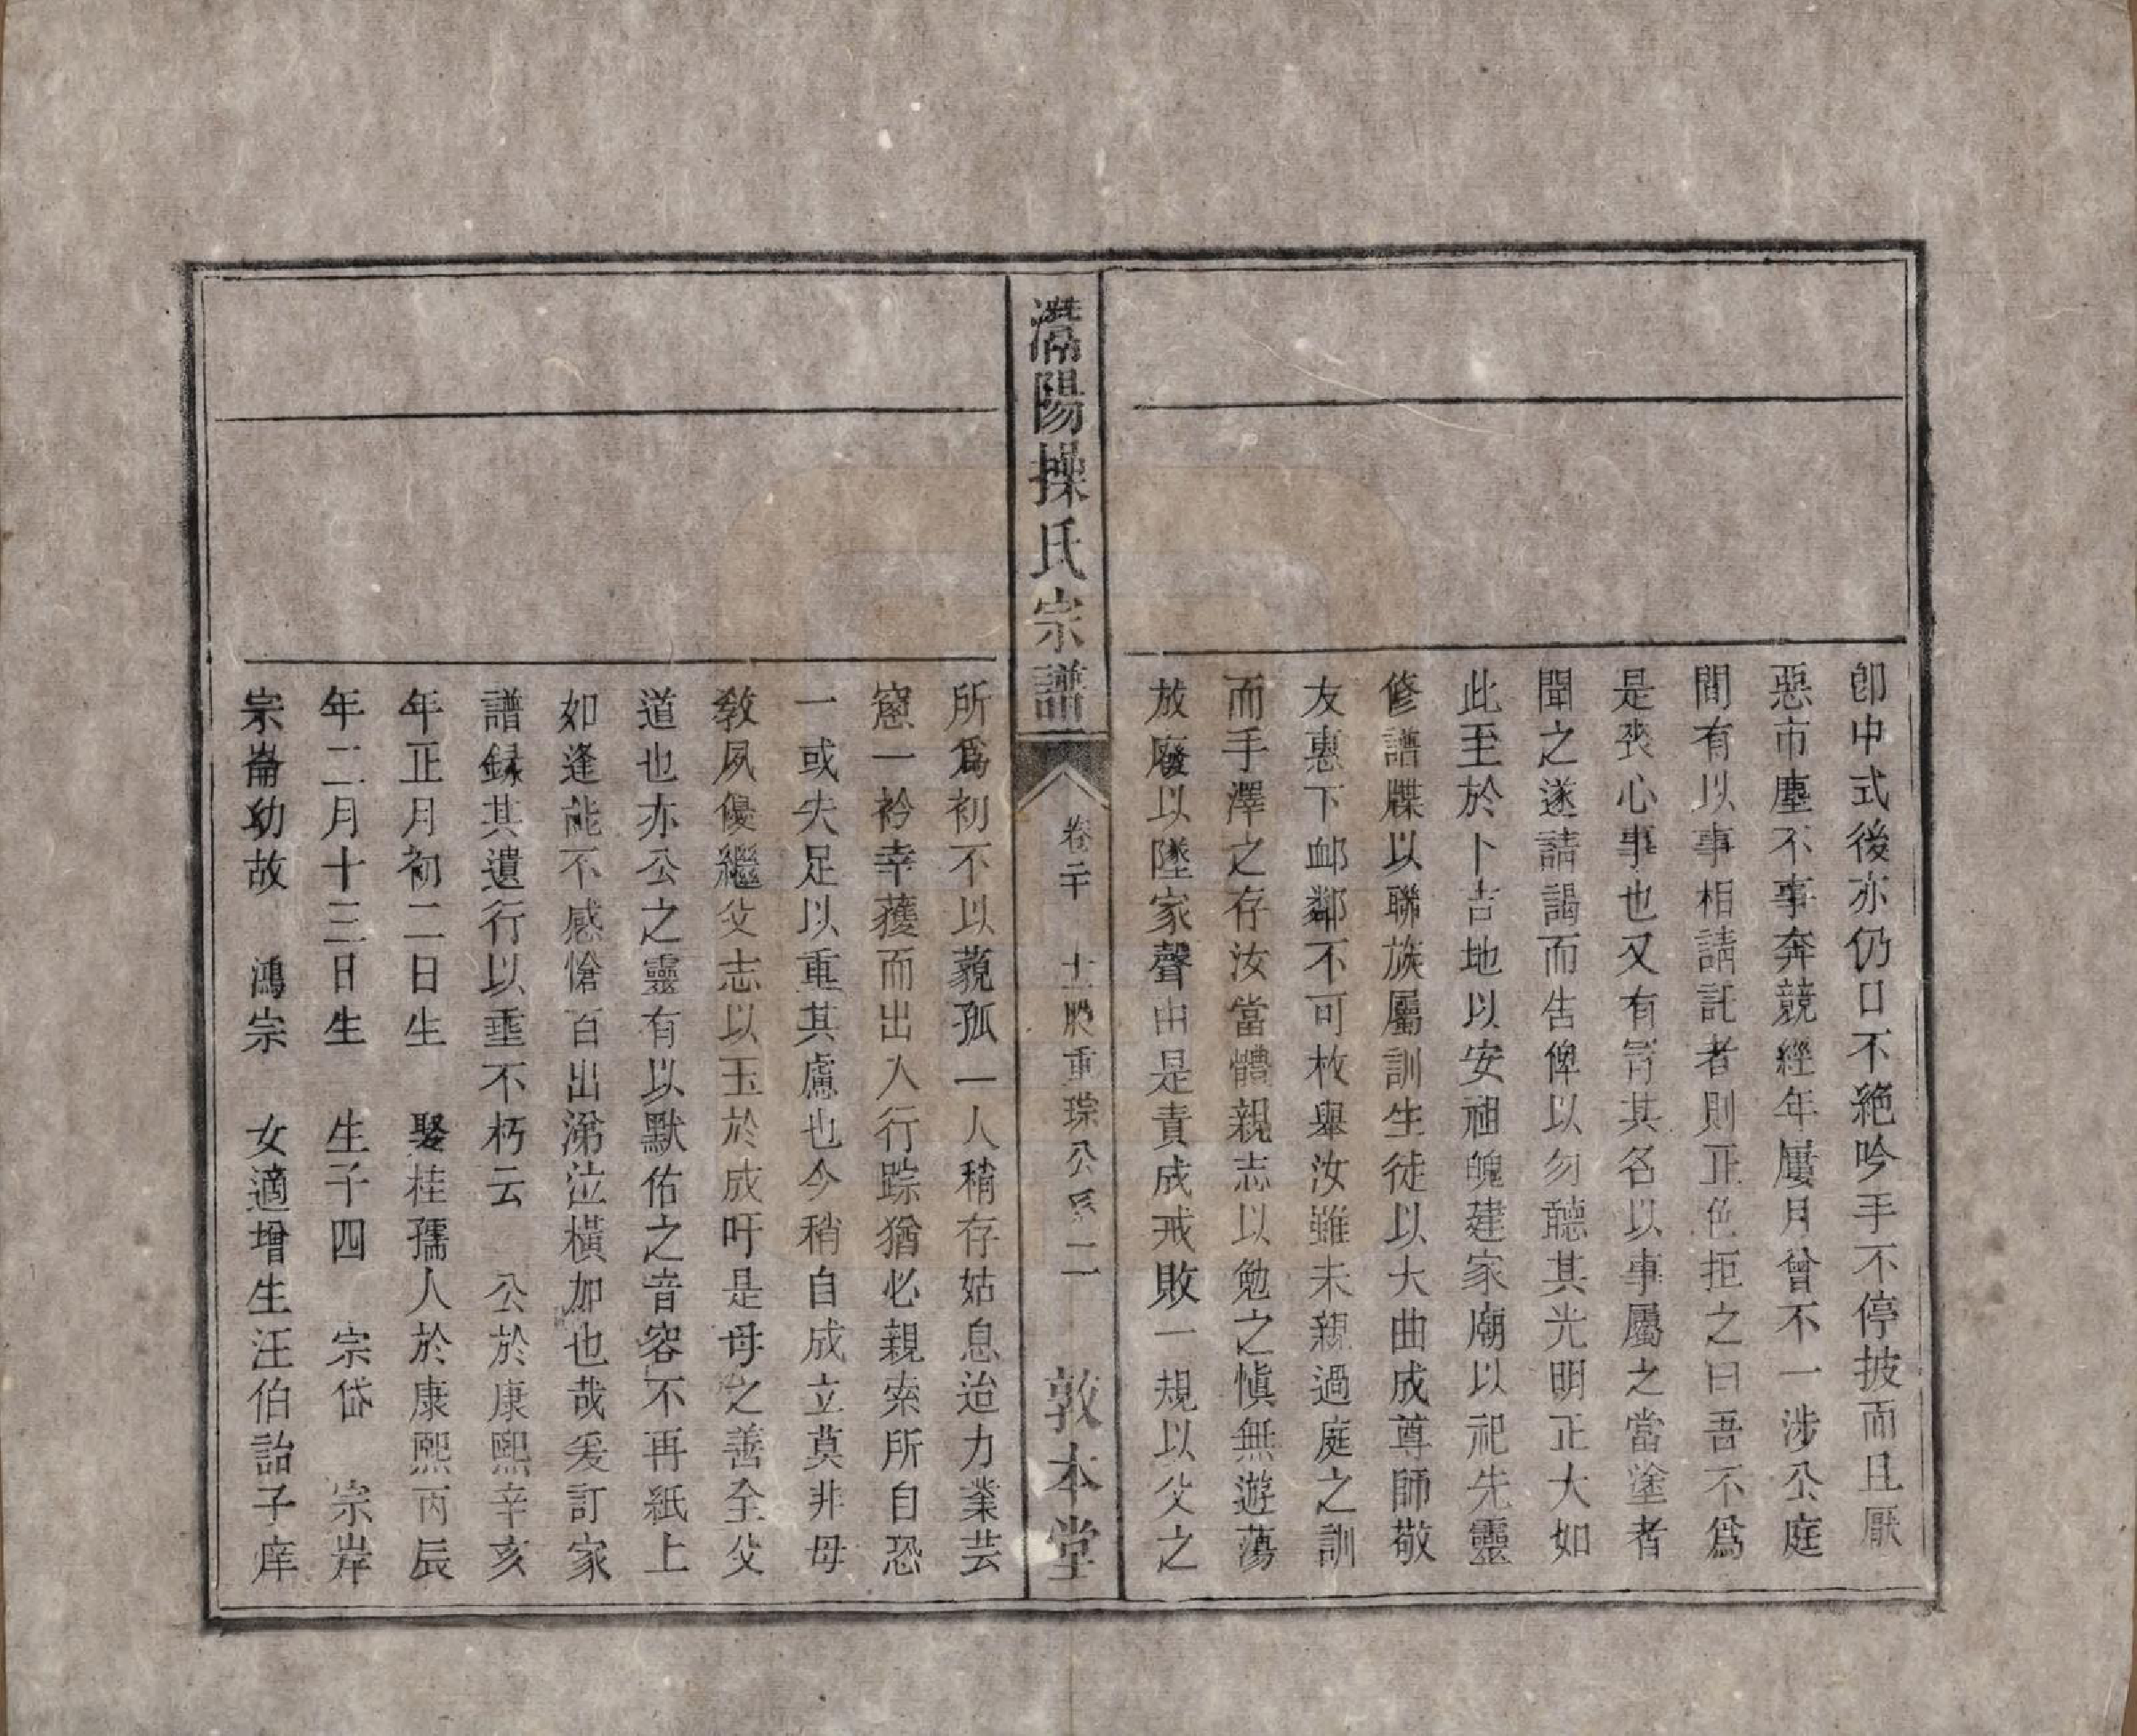 卽中式後亦仍口不絶吟手不停披而且厭
惡市塵不事奔競經年屢月曾不一涉公庭
間有以事相請託者則正色拒之曰吾不爲
是喪心事也又有冐其名以事屬之當塗者
聞之遂請謁而告俾以勿聽其光明正大如
此至於卜吉地以安祖魄建家廟以祀先靈
修譜牒以聯族屬訓生徒以大曲成尊師敬
友惠下䘏鄰不可枚舉汝雖未親過庭之訓
而手澤之存汝當體親志以勉之愼無遊蕩
放廢以墜家聲由是責成戒敗一規以父之
灊陽操氏宗譜 卷二十 士賜重琮公系二 敦本堂
所爲初不以藐孤一人稍存姑息迨力業芸
窻一衿幸獲而出入行踪猶必親索所自恐
一或失足以重其慮也今稍自成立莫非母
敎夙優繼父志以玉於成吁是母之善全父
道也亦公之靈有以默佑之音容不再紙上
如逢能不感愴百出涕泣橫加也哉爰訂家
譜録其遺行以垂不朽云 公於康熙辛亥
年正月初二日生 娶桂孺人於康熙丙辰
年二月十三日生 生子四 宗岱 宗岸
宗崙幼故 鴻宗 女適增生汪伯詒子庠